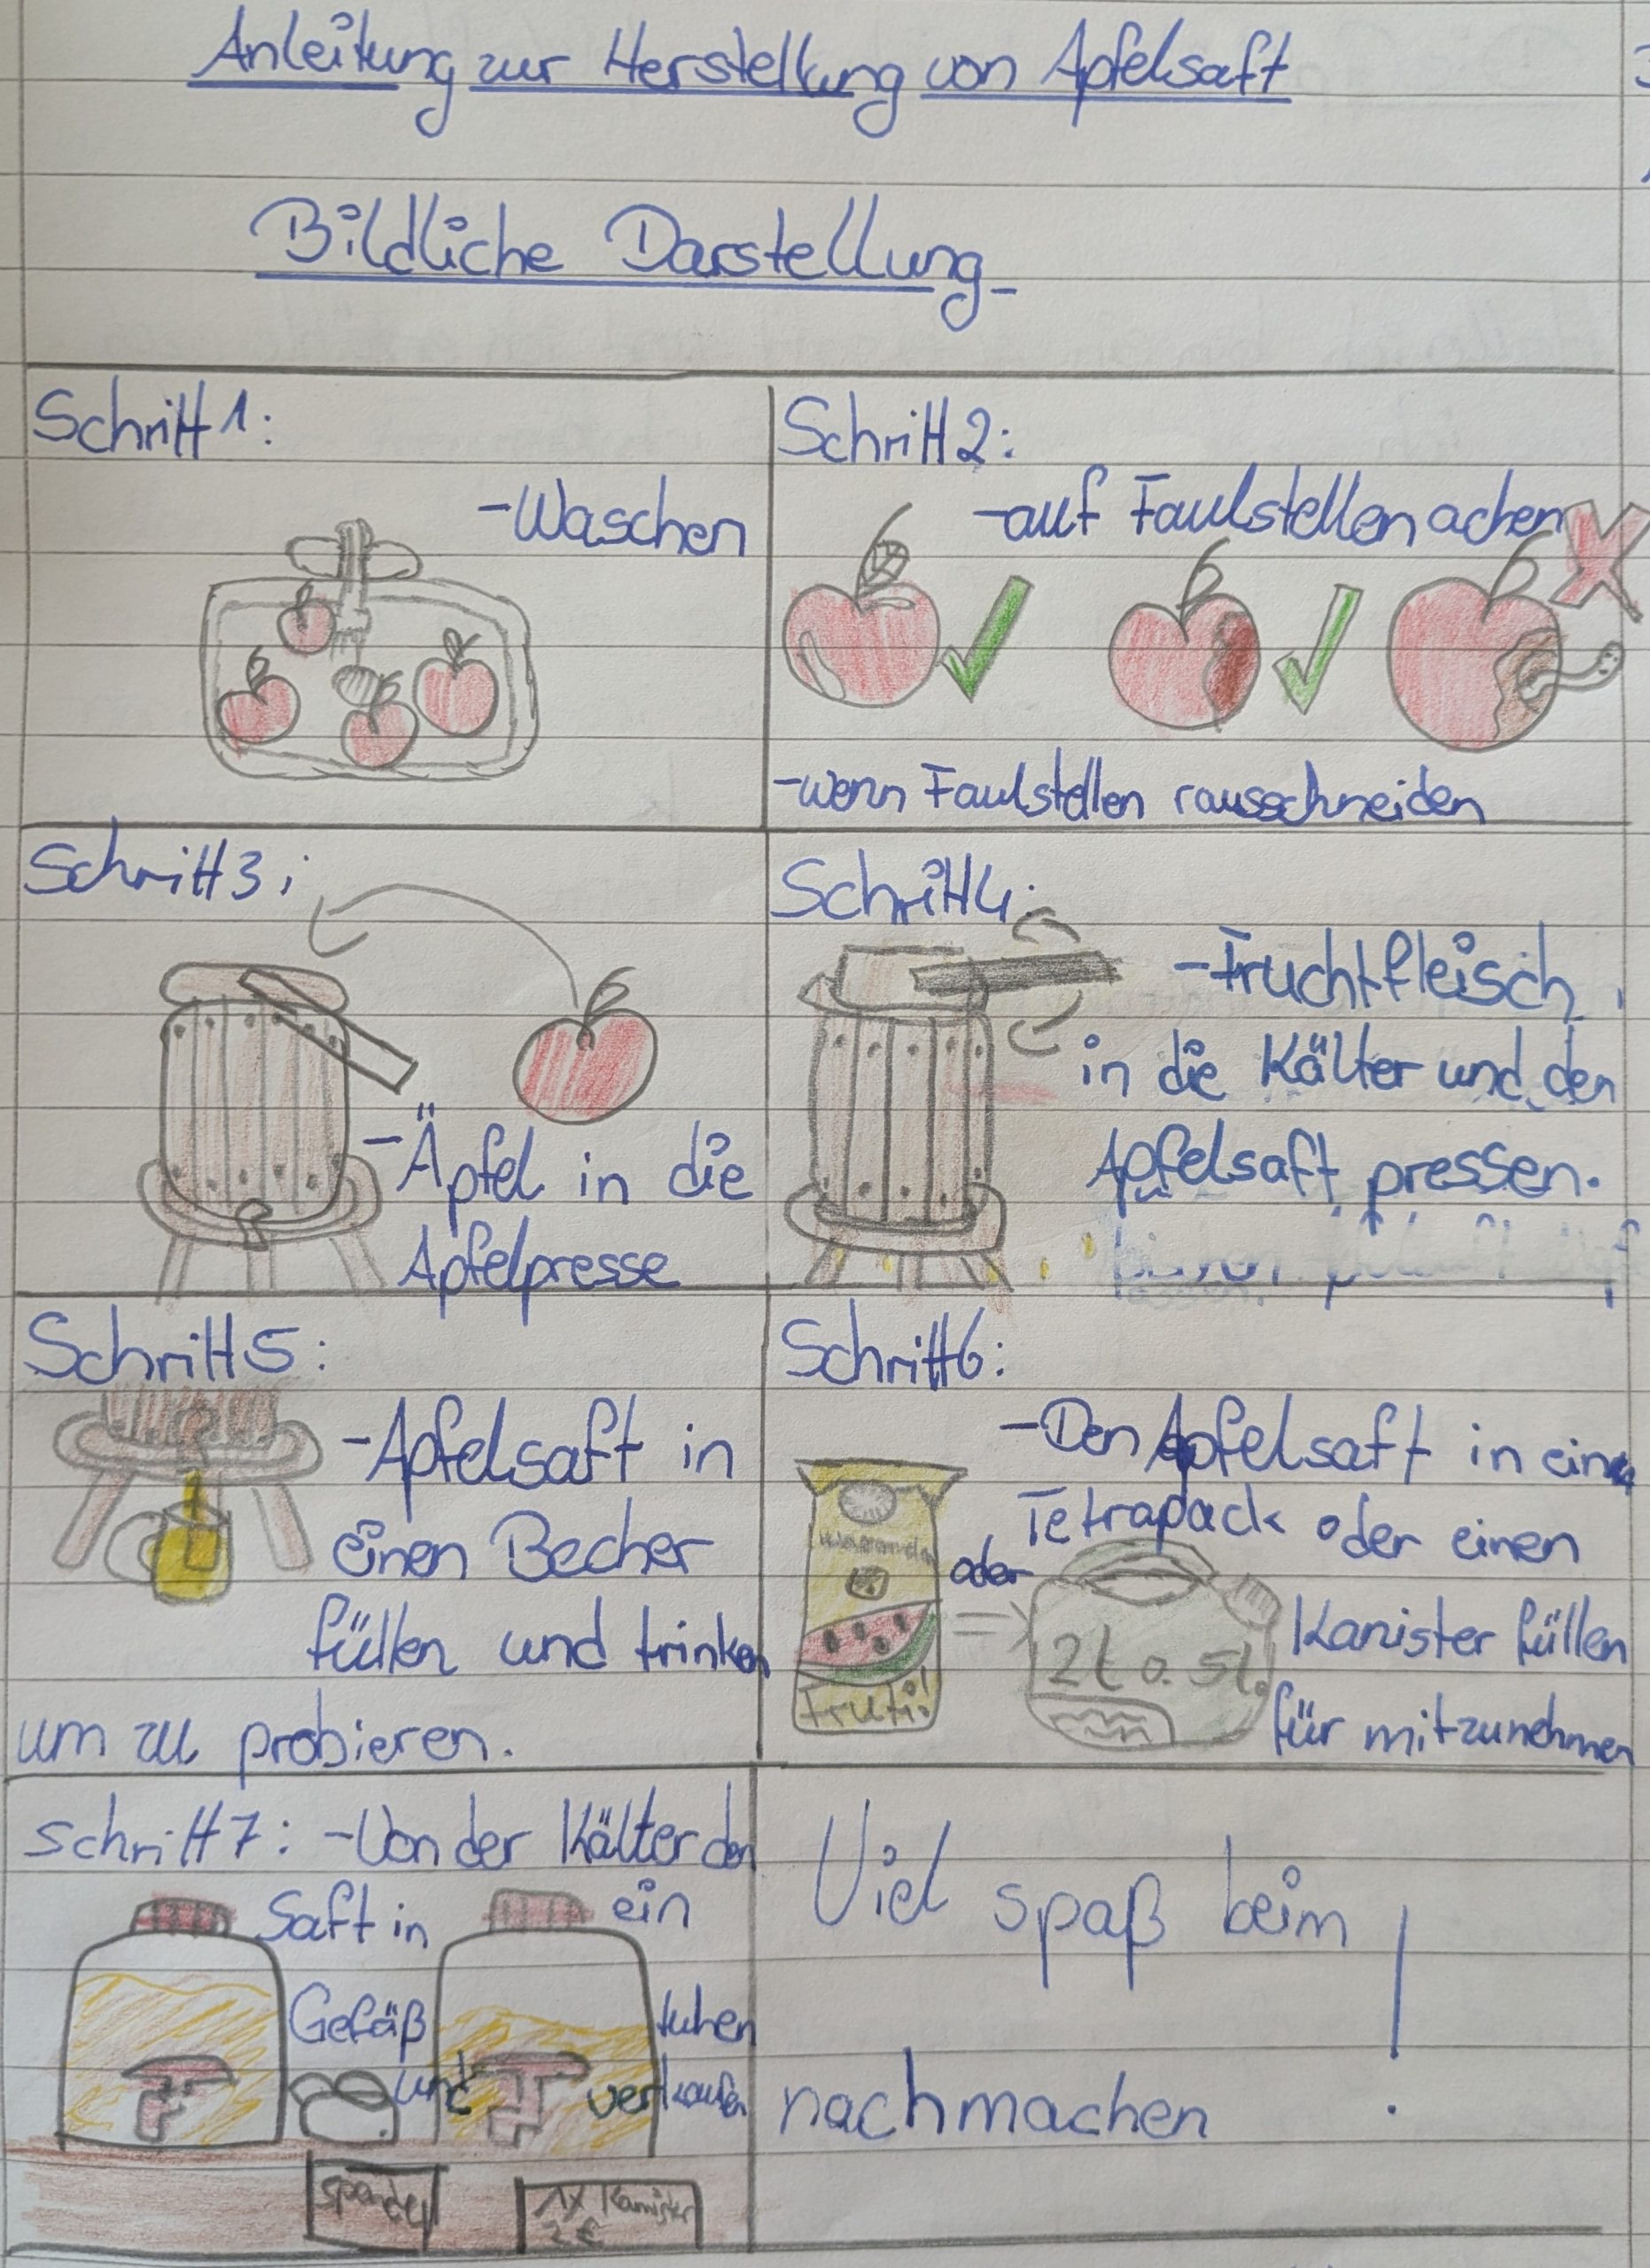 Anleitung zur Herstellung von Apfelsaft
Bildliche Darstellung
Schritt 1:
-Waschen
Schritt 2:
-auf Faulstellen achen
-wenn Faulstellen rausschneiden
Schritt 3:
-Äpfel in die
Apfelpresse
Schritt 4:
-Fruchtfleisch
in die Kälter und den
Apfelsaft pressen.
Schritt 5:
-Apfelsaft in
einen Becher
füllen und trinken
um zu probieren.
Schritt 6:
-Den Apfelsaft in ein
Tetrapack oder einen
oder
Kanister füllen
für mitzunehmen
2l o. 5l.
Fruti!
Schritt 7: -Von der Kälter den
Saft in ein
Gefäß tuhen
und verkaufen
1x Kanister
2€
Viel spaß beim
nachmachen !